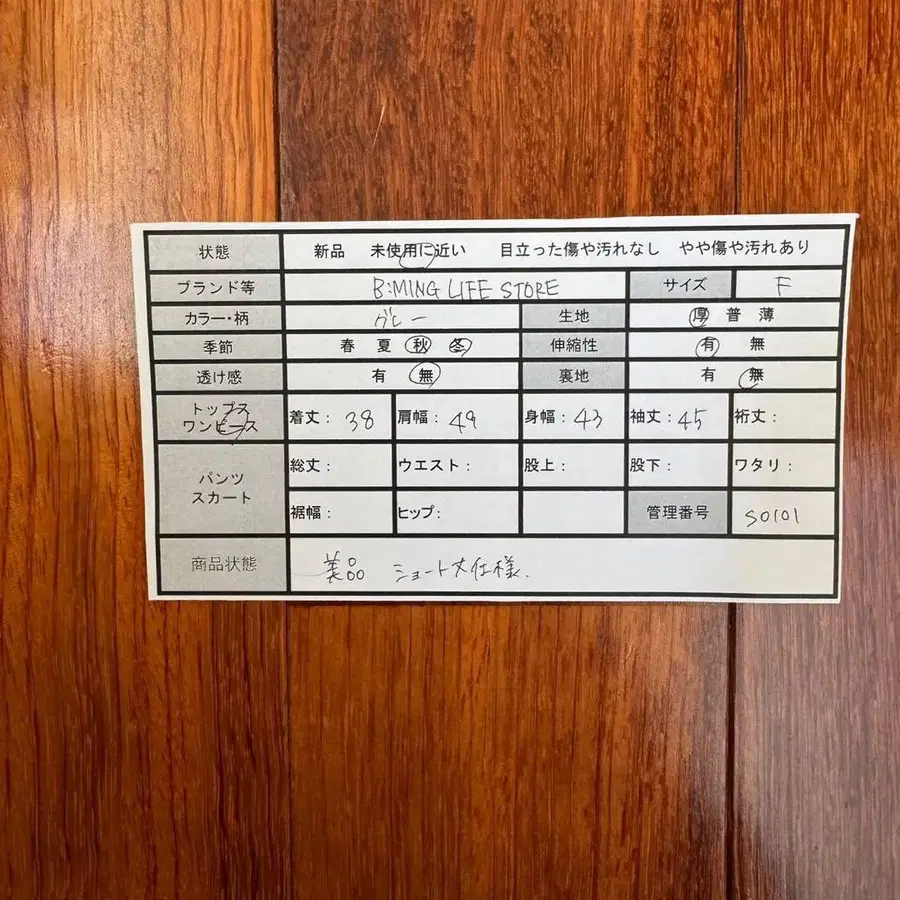 状態 新品 未使用に近い 目立った傷や汚れなし やや傷や汚れあり
ブランド等 B:MING LIFE STORE サイズ F
カラー・柄 グレー 生地 厚 普 薄
季節 春 夏 秋 冬 伸縮性 有 無
透け感 有 無 裏地 有 無
トップス
ワンピース 着丈: 38 肩幅: 49 身幅: 43 袖丈: 45 裄丈:
パンツ
スカート 総丈: ウエスト: 股上: 股下: ワタリ:
裾幅: ヒップ: 管理番号 S0101
商品状態 美品 ショート丈仕様.